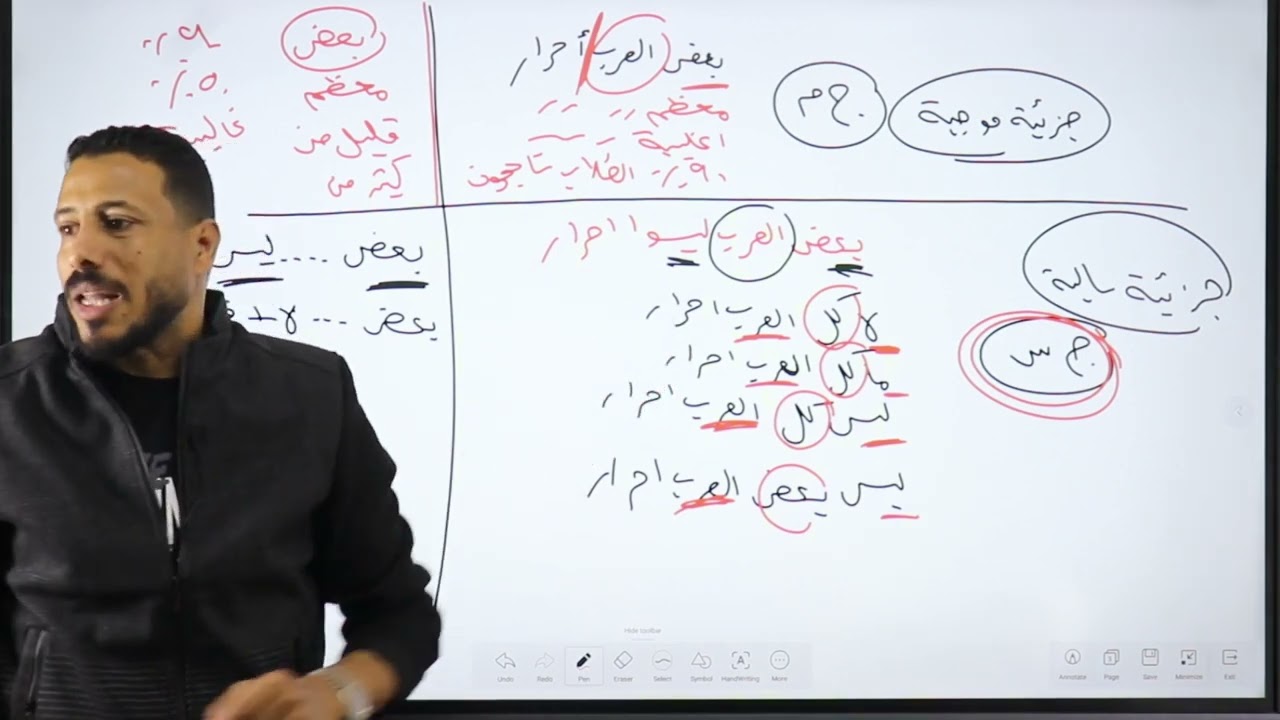 جزئية موجبة
ج م
بعض العرب أحرار
معظم
اغلبية
٩٠٪ الطلاب ناجحون
بعض ٩٠٪
معظم ٥٠٪
قليل من
كثير من
جزئية سالبة
ج س
بعض العرب ليسوا احرار
لا كل العرب احرار
ما كل العرب احرار
ليس كل العرب احرار
ليس بعض العرب احرار
بعض .... ليس
بعض ... لا +
Hide toolbar
Undo Redo Pen Eraser Select Symbol HandWriting More
Annotate Page Save Minimize Exit